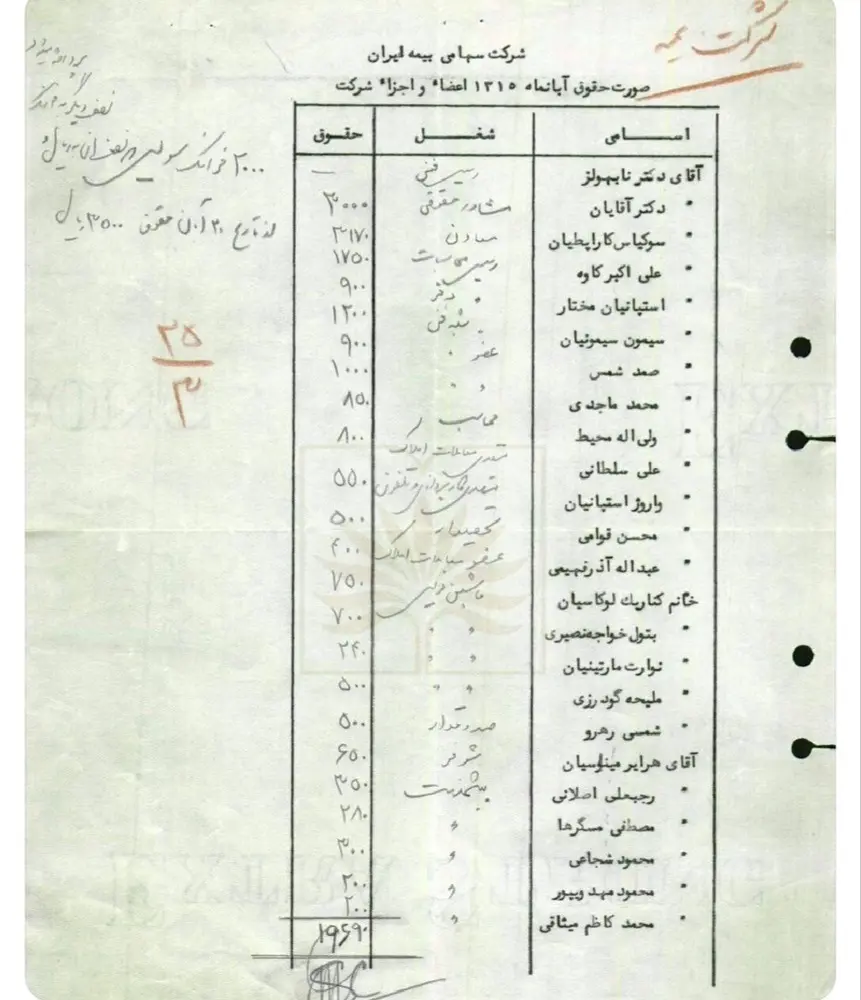 شرکت بیمه
شرکت سهامی بیمه ایران
صورت حقوق آبانماه ۱۳۱۵ اعضاء و اجزاء شرکت
اسامی شغل حقوق
آقای دکتر نایهولز رئیس فنی —
" دکتر آقایان مشاور حقوقی ۳۰۰۰
" سوکیاس کاراپطیان معاون ۳۱۷۰
" علی اکبر کاوه رئیس محاسبات ۱۷۵۰
" استپانیان مختار " دفتر ۹۰۰
" سیمون سیمونیان " شعبه فنی ۱۲۰۰
" صمد شمس عضو " ۹۰۰
" محمد ماجدی " " ۱۰۰۰
" ولی اله محیط محاسب ۸۵۰
" علی سلطانی متصدی معاملات املاک ۸۰۰
" واروژ استپانیان متصدی کارپردازی و تلفون ۵۵۰
" محسن قوامی تحصیلدار ۵۰۰
" عبداله آذرفهیمی عضو معاملات املاک ۴۰۰
خانم کتاریك لوکاسیان ماشین نویس ۷۵۰
" بتول خواجه نصیری " " ۷۰۰
" نوارت مارتینیان " " ۲۴۰
" ملیحه گودرزی " " ۵۰۰
" شمسی رهرو صندوقدار ۵۰۰
آقای هرایر میناسیان شوفر ۶۵۰
" رجبعلی اصلانی پیشخدمت ۳۵۰
" مصطفی مسگرها " ۲۸۰
" محمود شجاعی " ۳۰۰
" محمود مهدوپور " ۲۰۰
" محمد کاظم میثاقی " ۲۰۰
۱۹۶۹۰
نصف دیگر به فرانک
۲۰۰۰ فرانک سویس که نصف آن به ریال
از تاریخ ۳۰ آبان حقوق ۳۵۰۰ ریال
۲۵
۳